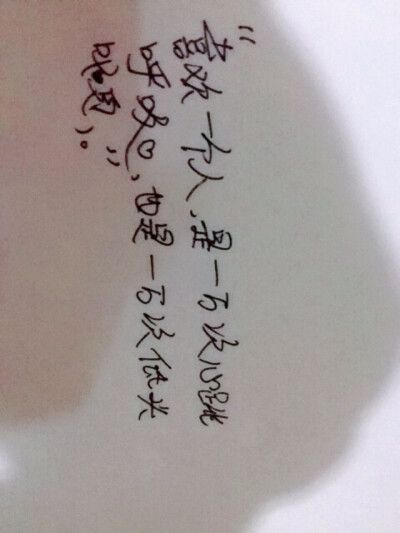 “喜欢一个人，是一万次心跳
呼吸，也是一万次低头